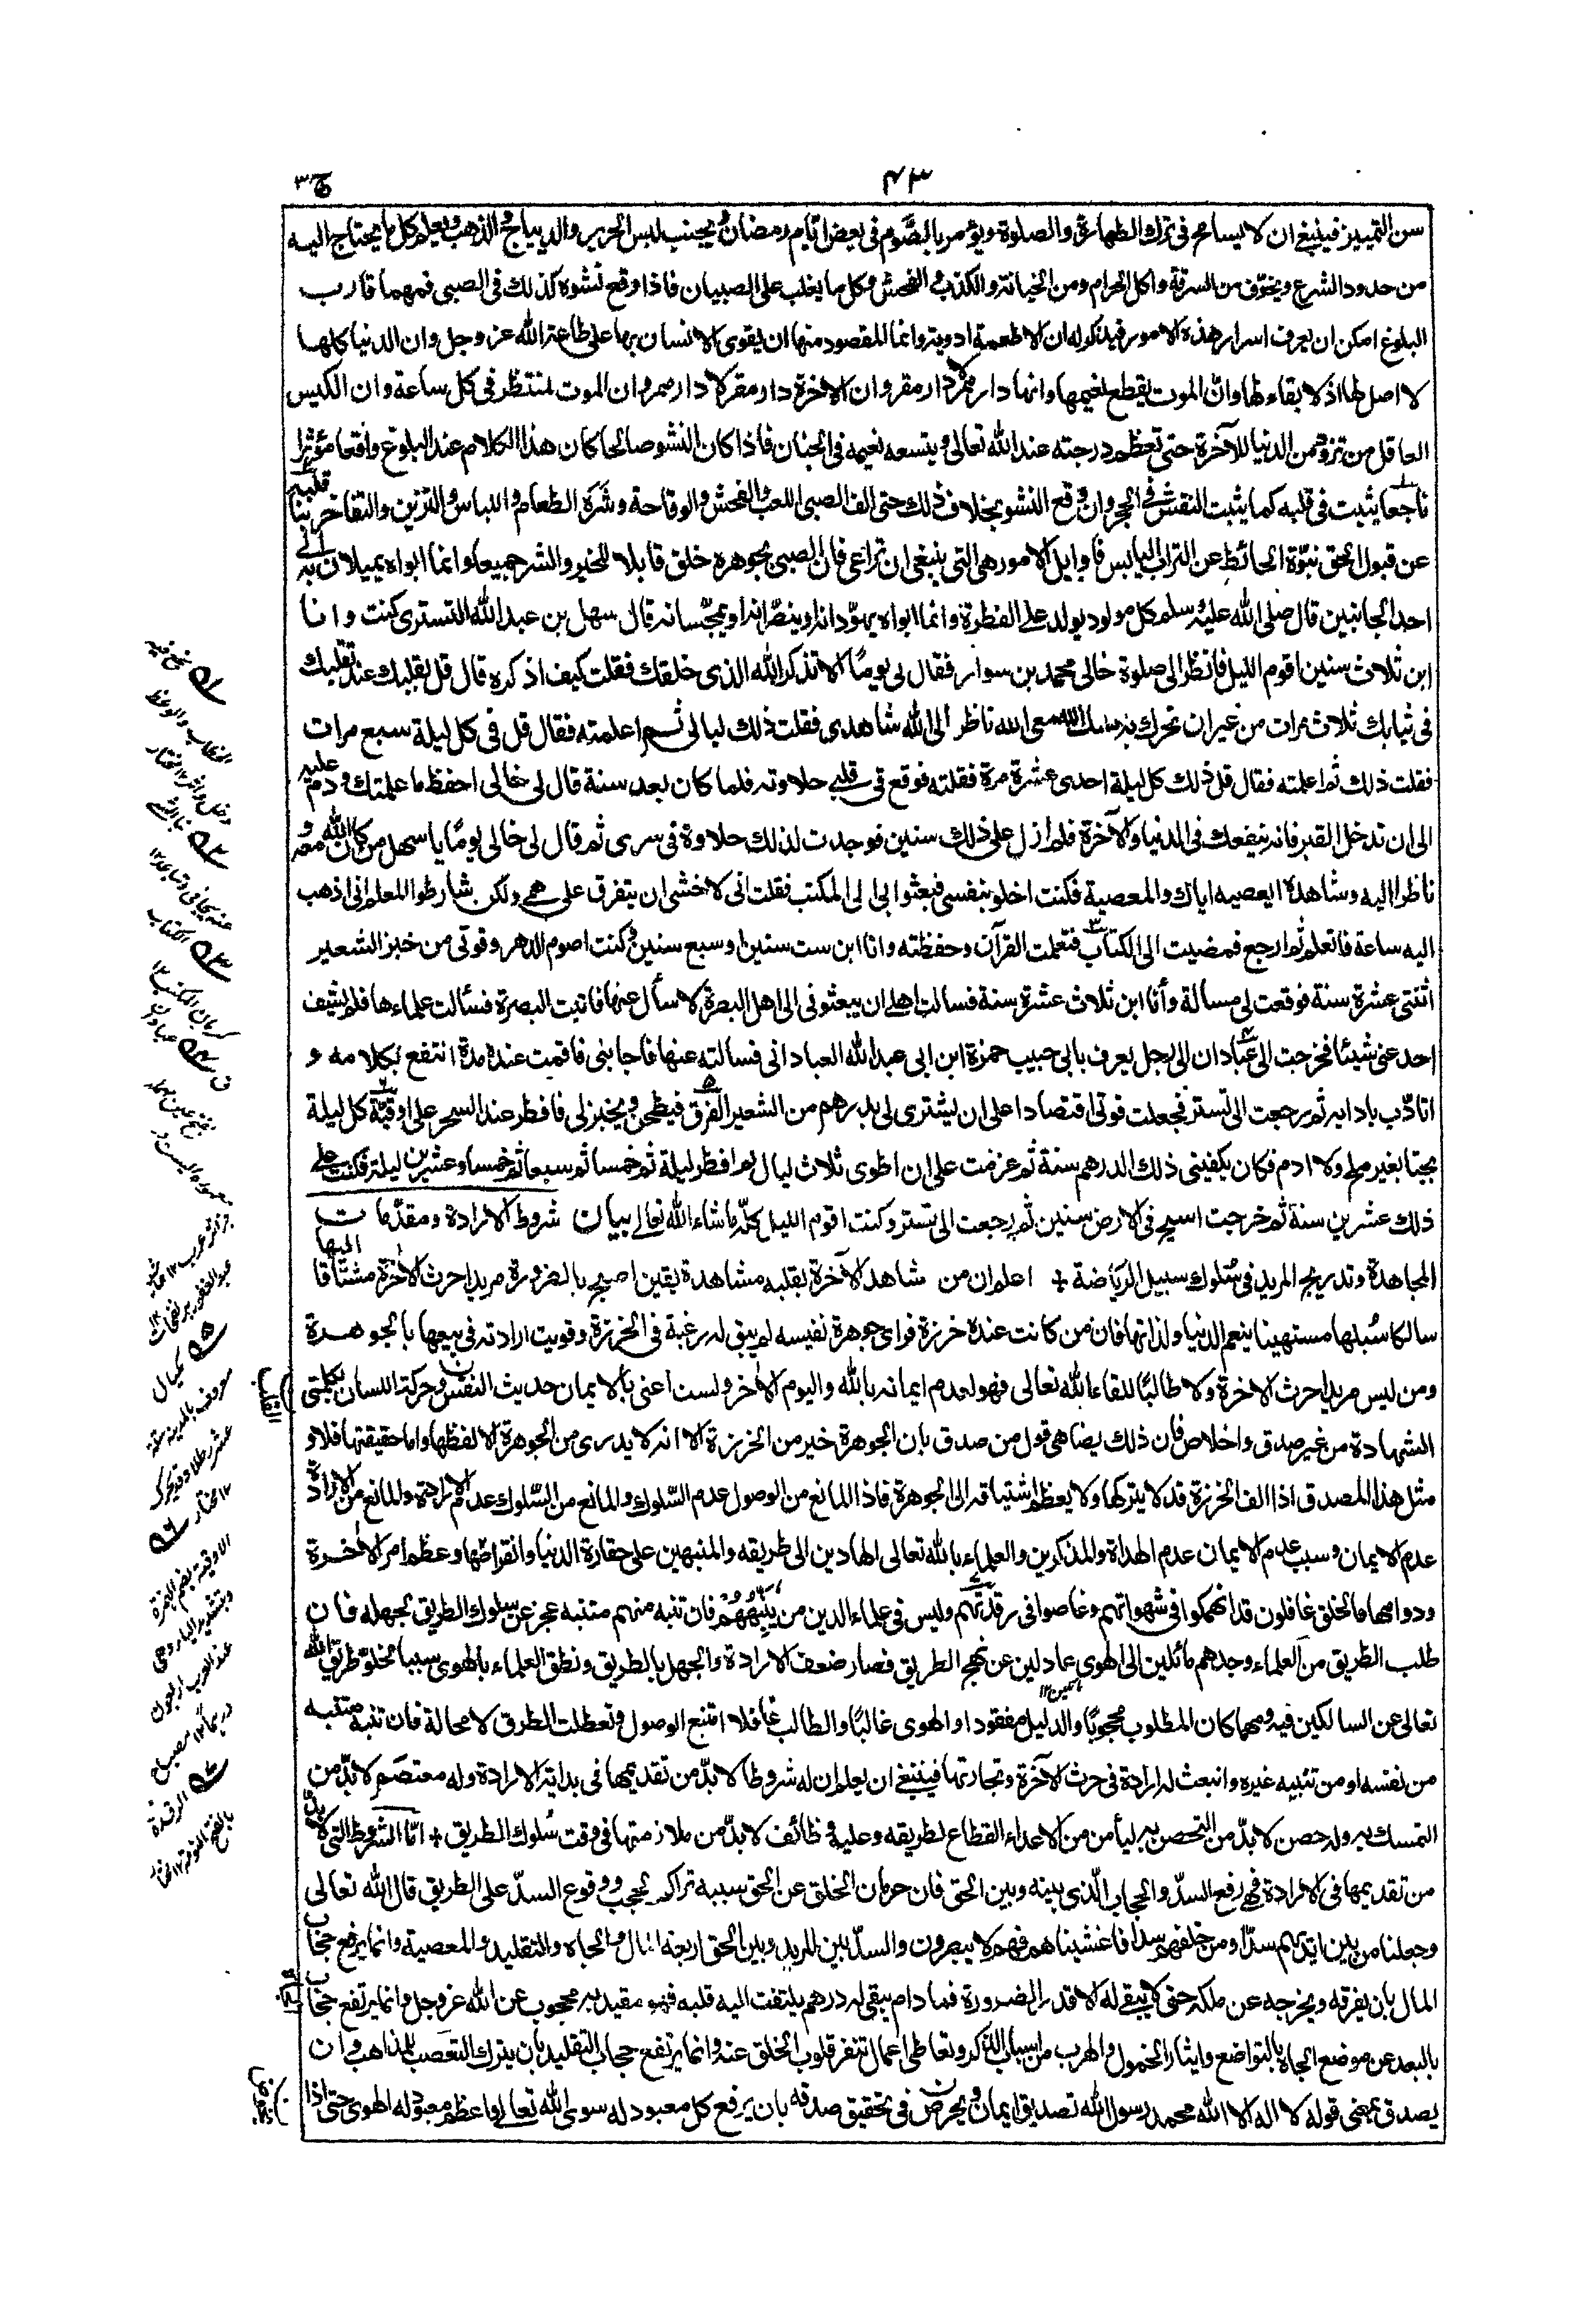 ٤٣
ج٣
سن التمييز فينبغي ان لا يسامح في ترك الطهارة والصلوة ويؤمر بالصوم في بعض ايام رمضان ويجنب لبس الحرير والديباج والذهب ويعلم كل ما يحتاج اليه
من حدود الشرع ويخوف من السرقة واكل الحرام ومن الخيانة والكذب والفحش وكل ما يغلب على الصبيان فاذا وقع نشوه كذلك في الصبى فمهما قارب
البلوغ امكن ان يعرف اسرار هذه الامور فيذكر له ان الاطعمة ادوية وانما المقصود منها ان يقوى الانسان بها على طاعة الله عز وجل وان الدنيا كلها
لا اصل لها اذ لا بقاء لها وان الموت يقطع نعيمها وانها دار ممر لا دار مقر وان الاخرة دار مقر لا دار ممر وان الموت منتظر في كل ساعة وان الكيس
العاقل من تزود من الدنيا للآخرة حتى تعظم درجته عند الله تعالى ويتسع نعيمه في الجنان فاذا كان النشو صالحا كان هذا الكلام عند البلوغ واقعا مؤثرا
ناجعا يثبت في قلبه كما يثبت النقش في الحجر وان وقع النشو بخلاف ذلك حتى الف الصبى اللعب والفحش والوقاحة وشره الطعام واللباس والتزين والتفاخر نبا قلبه
عن قبول الحق نبوة الحائط عن التراب اليابس فاوايل الامور هي التي ينبغي ان تراعى فان الصبى بجوهره خلق قابلا للخير والشر جميعا وانما ابواه يميلان به الى
احد الجانبين قال صلى الله عليه وسلم كل مولود يولد على الفطرة وانما ابواه يهودانه او ينصرانه او يمجسانه قال سهل بن عبد الله التسترى كنت وانا
ابن ثلاث سنين اقوم الليل فانظر الى صلوة خالى محمد بن سوار فقال لى يوما الا تذكر الله الذى خلقك فقلت كيف اذكره قال قل بقلبك عند تقلبك
في ثيابك ثلاث مرات من غير ان تحرك به لسانك الله معى الله ناظر الى الله شاهدى فقلت ذلك ليالى ثم اعلمته فقال قل في كل ليلة سبع مرات
فقلت ذلك ثم اعلمته فقال قل ذلك كل ليلة احدى عشرة مرة فقلته فوقع في قلبى حلاوته فلما كان بعد سنة قال لى خالى احفظ ما علمتك ودم عليه
الى ان تدخل القبر فانه ينفعك في الدنيا والآخرة فلم ازل على ذلك سنين فوجدت لذلك حلاوة في سرى ثم قال لى خالى يوما يا سهل من كان الله معه و
ناظرا اليه وشاهده ايعصيه اياك والمعصية فكنت اخلو بنفسى فبعثوا بى الى المكتب فقلت انى لاخشى ان يتفرق على همى ولكن شارطوا المعلم انى اذهب
اليه ساعة فاتعلم ثم ارجع فمضيت الى الكتاب فتعلمت القرآن وحفظته وانا ابن ست سنين او سبع سنين وكنت اصوم الدهر وقوتى من خبز الشعير
اثنتى عشرة سنة فوقعت لى مسالة وأنا ابن ثلاث عشرة سنة فسالت اهلى ان يبعثونى الى اهل البصرة لاسأل عنها فاتيت البصرة فسألت علماءها فلم يشف
احد عنى شيئا فخرجت الى عبادان الى رجل يعرف بابى حبيب حمزة ابن ابى عبد الله العبادانى فسالته عنها فاجابنى فاقمت عنده مدة انتفع بكلامه و
اتادب بادابه ثم رجعت الى تستر فجعلت قوتى اقتصادا على ان يشترى لى بدرهم من الشعير الفرق فيطحن ويخبز لى فافطر عند السحر على اوقية كل ليلة
بحتا بغير ملح ولا ادم فكان يكفينى ذلك الدرهم سنة ثم عزمت على ان اطوى ثلاث ليال ثم افطر ليلة ثم خمسا ثم سبعا ثم خمسا وعشرين ليلة فكنت على
ذلك عشرين سنة ثم خرجت اسيح في الارض سنين ثم رجعت الى تستر وكنت اقوم الليل كله ما شاء الله تعالى بيان شروط الارادة ومقدمات
المجاهدة وتدريج المريد في سلوك سبيل الرياضة + اعلم ان من شاهد الآخرة بقلبه مشاهدة يقين اصبح بالضرورة مريدا حرث الاخرة مشتاقا اليها
سالكا سبلها مستهينا بنعم الدنيا ولذاتها فان من كانت عنده خرزة فراى جوهرة نفيسه لم يبق له رغبة في الخرزة وقويت ارادته في بيعها بالجوهرة
ومن ليس مريدا حرث الاخرة ولا طالبا للقاء الله تعالى فهو لعدم ايمانه بالله واليوم الاخر ولست اعنى بالايمان حديث النفس وحركة اللسان بكلمتى
الشهادة من غير صدق واخلاص فان ذلك يضاهى قول من صدق بان الجوهرة خير من الخرزة الا انه لا يدرى من الجوهرة الا لفظها واما حقيقتها فلا و
مثل هذا المصدق اذا الف الخرزة قد لا يتركها ولا يعظم اشتياقه الى الجوهرة فاذا المانع من الوصول عدم السلوك والمانع من السلوك عدم الارادة والمانع من الارادة
عدم الايمان وسبب عدم الايمان عدم الهداة والمذكرين والعلماء بالله تعالى الهادين الى طريقه والمنبهين على حقارة الدنيا وانقراضها وعظم امر الأخرة
ودوامها فالخلق غافلون قد انهمكوا في شهواتهم وغاصوا في رقدتهم وليس في علماء الدين من ينبههم فان تنبه منهم متنبه عجز عن سلوك الطريق لجهله فان
طلب الطريق من العلماء وجدهم مائلين الى الهوى عادلين عن نهج الطريق فصار ضعف الارادة والجهل بالطريق ونطق العلماء بالهوى سببا لخلو طريق الله
تعالى عن السالكين فيه ومهما كان المطلوب محجوبا والدليل مفقودا والهوى غالبا والطالب غافلا امتنع الوصول وتعطلت الطرق لا محالة فان تنبه متنبه
من نفسه او من تنبيه غيره وانبعث له ارادة في حرث الآخرة وتجارتها فينبغى ان يعلم ان له شروطا لا بد من تقديمها في بداية الارادة وله معتصم لا بد من
التمسك به وله حصن لا بد من التحصن به ليأمن من الاعداء القطاع لطريقه وعليه وظائف لا بد من ملازمتها في وقت سلوك الطريق + اما الشروط التى لا بد
من تقديمها في الارادة فهى رفع السد والحجاب الذى بينه وبين الحق فان حرمان الخلق عن الحق سببه تراكم الحجب ووقوع السد على الطريق قال الله تعالى
وجعلنا من بين ايديهم سدا ومن خلفهم سدا فاغشيناهم فهم لا يبصرون والسد بين المريد وبين الحق اربعة المال والجاه والتقليد والمعصية وانما يرفع حجاب
المال بان يفرقه ويخرجه عن ملكه حتى لا يبقى له الا قدر الضرورة فما دام يبقى له درهم يلتفت اليه قلبه فهو مقيد به محجوب عن الله عز وجل وانما يرتفع حجاب الجاه
بالبعد عن موضع الجاه بالتواضع وايثار الخمول والهرب من اسباب الذكر وتعاطى اعمال تنفر قلوب الخلق عنه وانما يرتفع حجاب التقليد بان يترك التعصب للمذاهب وان
يصدق بمعنى قوله لا اله الا الله محمد رسول الله تصديق ايمان ويحرص في تحقيق صدقه بان يرفع كل معبود له سوى الله تعالى واعظم معبود له الهوى حتى اذا
القلب